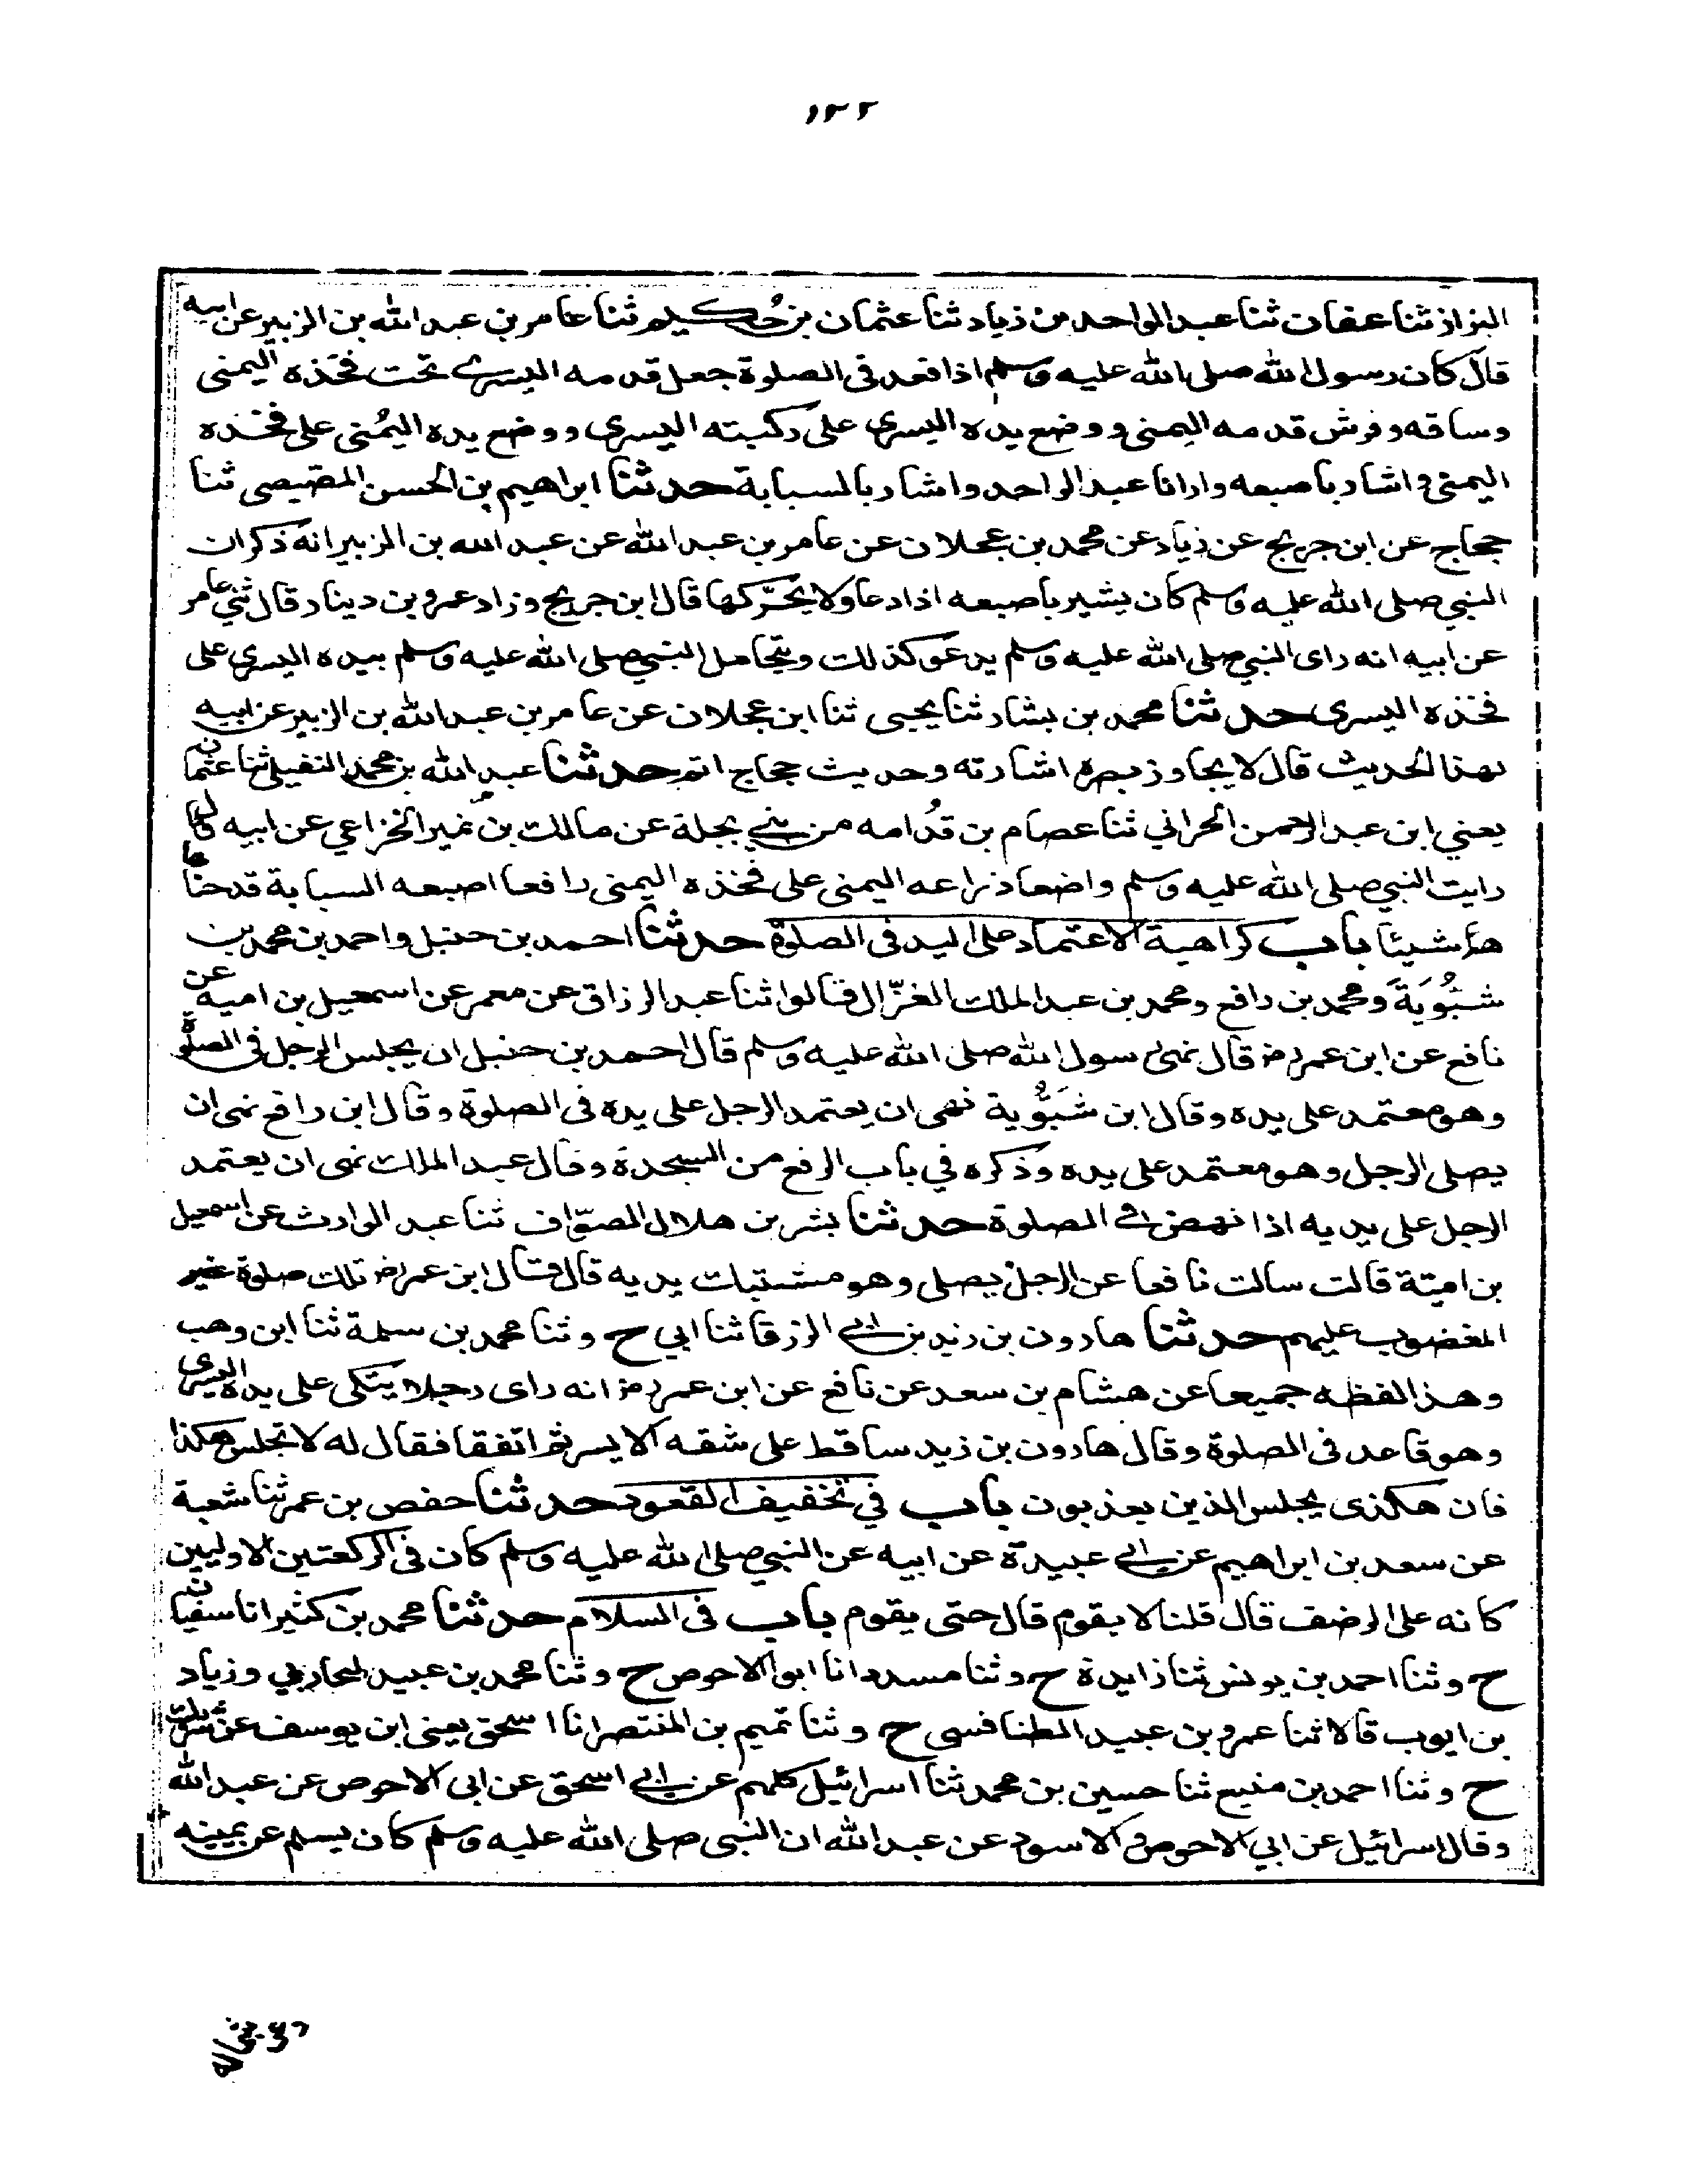 ١٢٢
البزاز ثنا عفان ثنا عبد الواحد بن زياد ثنا عثمان بن حُكيم ثنا عامر بن عبد الله بن الزبير عن ابيه
قال كان رسول الله صلى الله عليه وسلم اذا قعد فى الصلوة جعل قدمه اليسرى تحت فخذه اليمنى
وساقه وفرش قدمه اليمنى ووضع يده اليسرى على ركبته اليسرى ووضع يده اليُمنى على فخذه
اليمنى واشار باصبعه وارانا عبد الواحد واشار بالسبابة حدثنا ابراهيم بن الحسن المصّيصى ثنا
حجاج عن ابن جريج عن زياد عن محمد بن عجلان عن عامر بن عبد الله عن عبد الله بن الزبير انه ذكر ان
النبى صلى الله عليه وسلم كان يشير باصبعه اذا دعا ولا يحرّكها قال ابن جريج وزاد عمرو بن دينار قال ثنى عامر
عن ابيه انه راى النبى صلى الله عليه وسلم يدعو كذلك ويتحامل النبى صلى الله عليه وسلم بيده اليسرى على
فخذه اليسرى حدثنا محمد بن بشار ثنا يحيى ثنا ابن عجلان عن عامر بن عبد الله بن الزبير عن ابيه
بهذا الحديث قال لا يجاوز بصره اشارته وحديث حجاج اتم حدثنا عبد الله بن محمد النفيلى ثنا عثمان
يعني ابن عبد الرحمن الحراني ثنا عصام بن قُدامه من بني بجلة عن مالك بن نمير الخزاعي عن ابيه قال
رايت النبى صلى الله عليه وسلم واضعا ذراعه اليمنى على فخذه اليمنى رافعا اصبعه السبابة قد حناها
شيئا باب كراهية الاعتماد على اليد فى الصلوة حدثنا احمد بن حنبل واحمد بن محمد بن
شَبُّوَيَةَ ومحمد بن رافع ومحمد بن عبد الملك الغزّال قالوا ثنا عبد الرزاق عن معمر عن اسمعيل بن امية عن
نافع عن ابن عمر رض قال نهى رسول الله صلى الله عليه وسلم قال احمد بن حنبل ان يجلس الرجل فى الصلوة
وهو معتمد على يده وقال ابن شَبُّوية نهى ان يعتمد الرجل على يده فى الصلوة وقال ابن رافع نهى ان
يصلى الرجل وهو معتمد على يده وذكره في باب الرفع من السجدة وقال عبد الملك نهى ان يعتمد
الرجل على يديه اذا نهض فى الصلوة حدثنا بشر بن هلال الصوّاف ثنا عبد الوارث عن اسمعيل
بن اميّة قالت سالت نافعا عن الرجل يصلى وهو مشتبك يديه قال قال ابن عمر رض تلك صلوة غير
المغضوب عليهم حدثنا هارون بن زيد بن ابي الزرقا ثنا ابي ح وثنا محمد بن سلمة ثنا ابن وهب
وهذا لفظه جميعا عن هشام بن سعد عن نافع عن ابن عمر رض انه راى رجلا يتكى على يده اليسرى
وهو قاعد فى الصلوة وقال هارون بن زيد ساقط على شقه الايسر ثم اتفقا فقال له لا تجلس هكذا
فان هكذى يجلس الذين يعذبون باب في تخفيف القعود حدثنا حفص بن عمر ثنا شعبة
عن سعد بن ابراهيم عن ابي عبيدة عن ابيه عن النبى صلى الله عليه وسلم كان فى الركعتين الاوليين
كانه على الرضف قال قلنا لا يقوم قال حتى يقوم باب فى السلام حدثنا محمد بن كثير انا سفيان
ح وثنا احمد بن يونس ثنا زايدة ح وثنا مسدد انا ابو الاحوص ح وثنا محمد بن عبيد المحاربي وزياد
بن ايوب قالا ثنا عمرو بن عبيد الطنافسى ح وثنا تميم بن المنتصر انا اسحق يعنى ابن يوسف عن شريك
ح وثنا احمد بن منيع ثنا حسين بن محمد ثنا اسرائيل كلهم عن ابي اسحق عن ابى الاحوص عن عبد الله
وقال اسرائيل عن ابي الاحوص والاسود عن عبد الله ان النبى صلى الله عليه وسلم كان يسلم عن يمينه